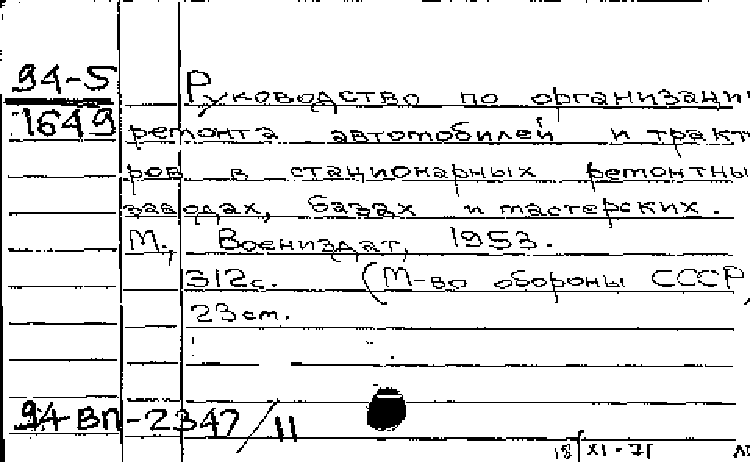 94-5
1649
Руководство по организаци
ремонта автомобилей и тракт
ров в стационарных ремонтны
заводах, базах и мастерских.
М., Воениздат, 1953.
312с. (М-во обороны СССР)
23 см.
94-ВП-2347/II
18/XI-71